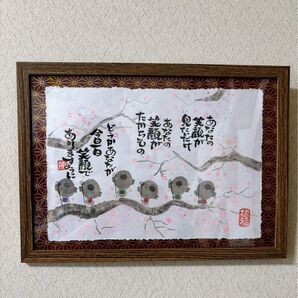 あなたの
笑顔が
見たくて
あなたの
笑顔が
たからもの
どうかあなたが
今日一日
笑顔で
ありますように